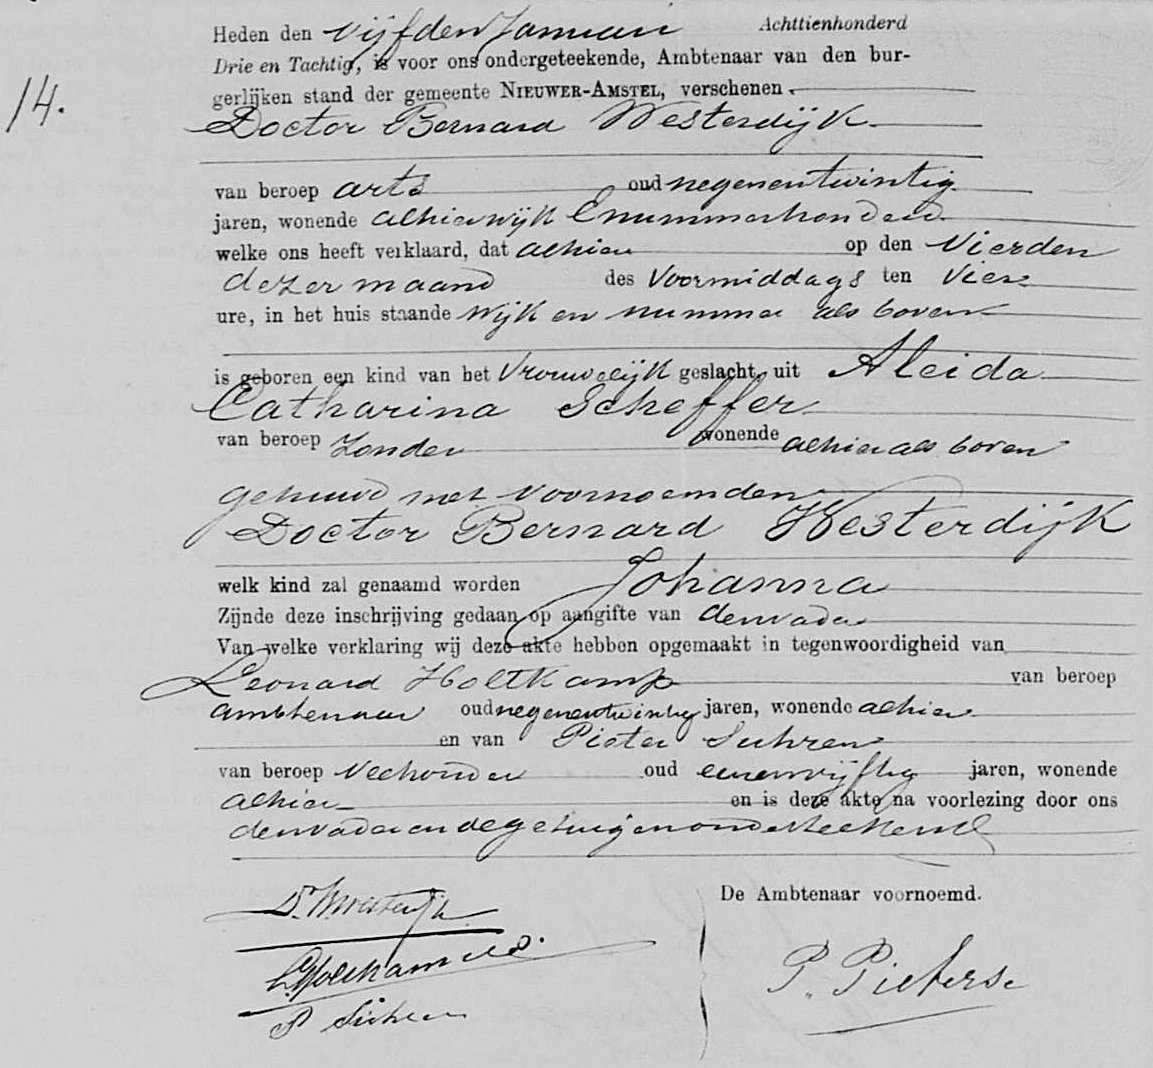 14.
Heden den vijfden Januari Achttienhonderd
Drie en Tachtig, is voor ons ondergeteekende, Ambtenaar van den bur-
gerlijken stand der gemeente NIEUWER-AMSTEL, verschenen
Doctor Bernard Westerdijk
van beroep arts oud negenentwintig
jaren, wonende alhier wijk E nummer honderd
welke ons heeft verklaard, dat alhier op den vierden
dezer maand des voormiddags ten vier
ure, in het huis staande wijk en nummer als boven
is geboren een kind van het vrouwelijk geslacht, uit Aleida
Catharina Scheffer
van beroep zonder wonende alhier als boven
gehuwd met voornoemden
Doctor Bernard Westerdijk
welk kind zal genaamd worden Johanna
Zijnde deze inschrijving gedaan op aangifte van den vader
Van welke verklaring wij deze akte hebben opgemaakt in tegenwoordigheid van
Leonard Holtkamp van beroep
ambtenaar oud negenentwintig jaren, wonende alhier
en van Pieter Suhren
van beroep veehouder oud eenenvijftig jaren, wonende
alhier en is deze akte na voorlezing door ons
den vader en de getuigen onderteekend
De Ambtenaar voornoemd.
Dr. B Westerdijk
L. Holtkamp
P Suhren
P. Pieterse